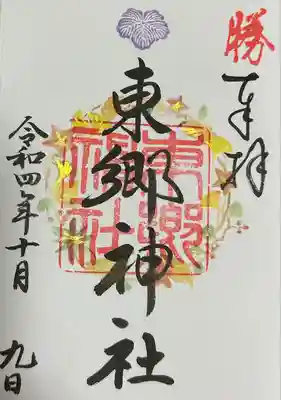 勝
奉拝
東郷神社
東郷神社
令和四年十月
九日